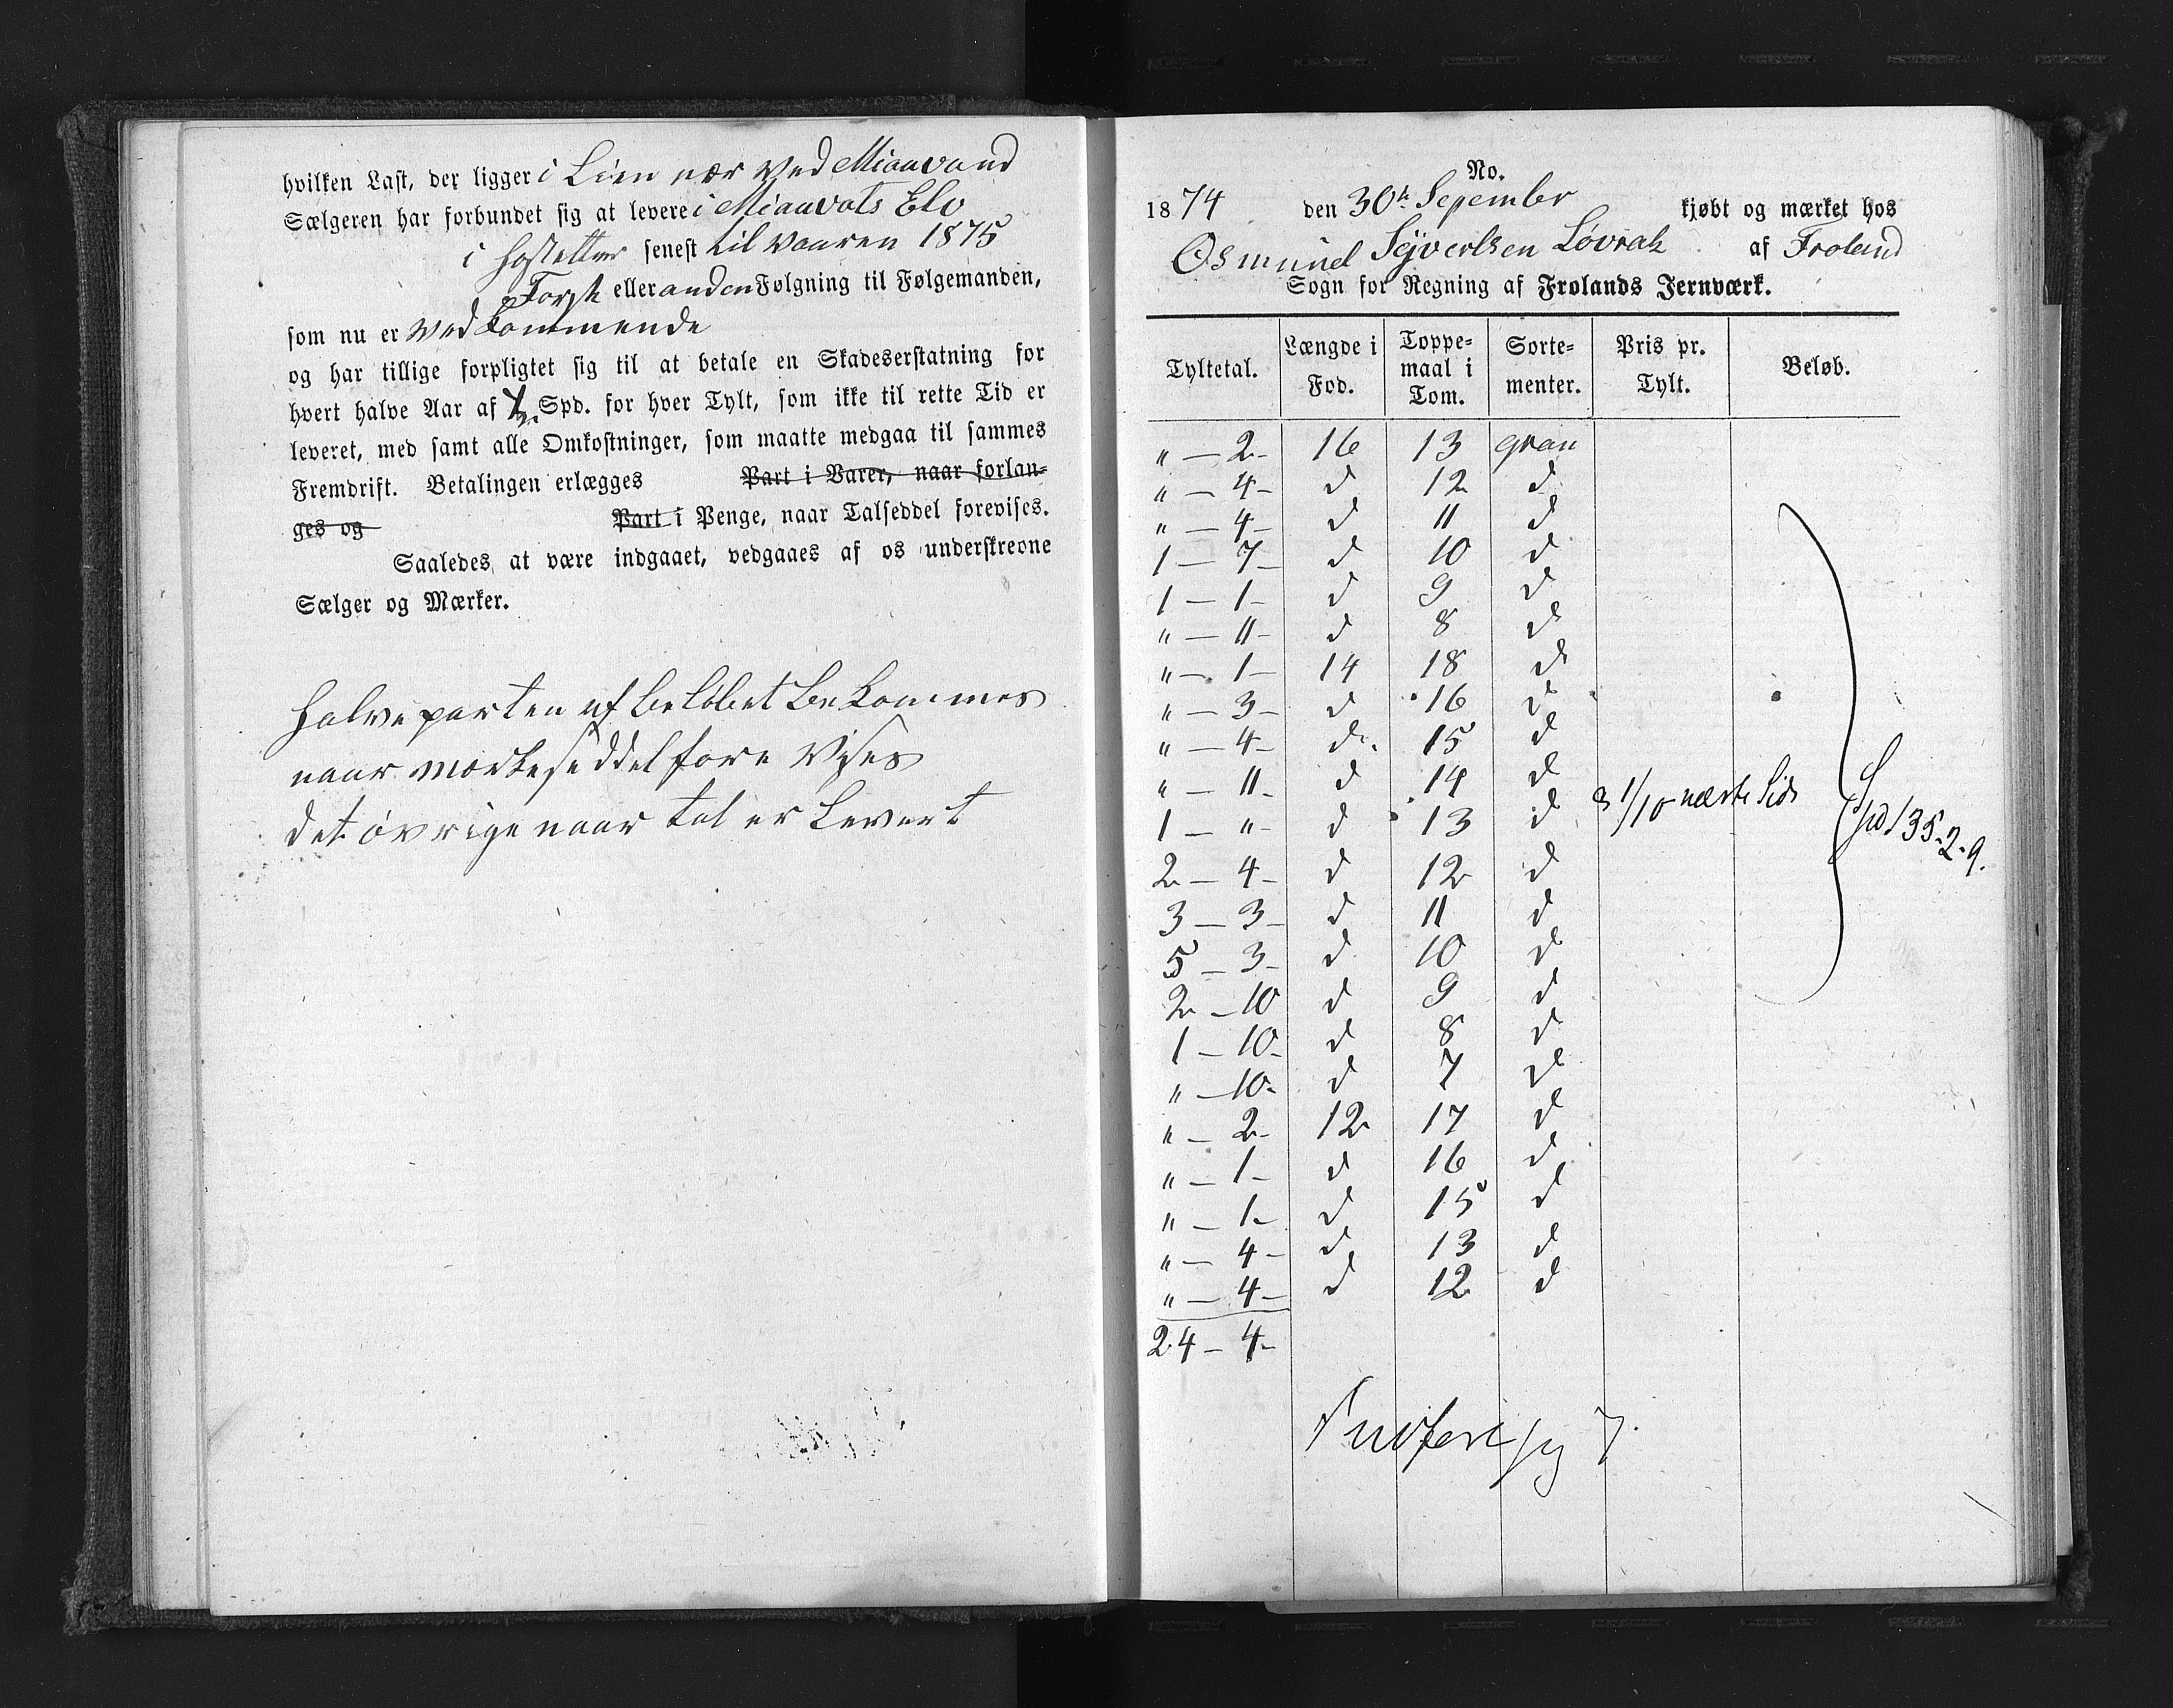 hvilken Last, der ligger i Lien nær ved Miauvand
Sælgeren har forbundet sig at levere i Miauvats Elv
i Høst eller senest til Vaaren 1875
eller anden Følgning til Følgemanden,
som nu er vedkommende
og har tillige forpligtet sig til at betale en Skadeserstatning for
hvert halve Aar af Spd. for hver Tylt, som ikke til rette Tid er
leveret, med samt alle Omkostninger, som maatte medgaa til sammes
Fremdrift. Betalingen erlægges Part i Varer, naar forlan-
ges og Part i Penge, naar Talseddel forevises.
Saaledes at være indgaaet, vedgaaes af os underskrevne
Sælger og Mærker.
Halveparten af beløbet bekommes
naar mærkeseddel fore Vises
det øvrige naar tal er Levert
No.
1874 den 30te Sepember kjøbt og mærket hos
Osmund Sÿvertsen Løvrak af Froland
Sogn for Regning af Frolands Jernværk.
Tyltetal. Længde i Fod. Toppe-maal i Tom. Sorte-menter. Pris pr. Tylt. Beløb.
" — 2 - 16 13 gran
" — 4 - d 12 d
" — 4 - d 11 d
1 — 7 - d 10 d
1 — 1 - d 9 d
" — 11 - d 8 d
" — 1 - 14 18 d
" — 3 - d 16 d
" — 4 - d 15 d
" — 11 - d 14 d
1 — " - d 13 d 3 1/10 næste Side Spd 135-2-9.
2 — 4 - d 12 d
3 — 3 - d 11 d
5 — 3 - d 10 d
2 — 10 d 9 d
1 — 10 - d 8 d
" — 10 - d 7 d
" — 2 - 12 17 d
" — 1 - d 16 d
" — 1 - d 15 d
" — 4 - d 13 d
" — 4 - d 12 d
24 — 4 -